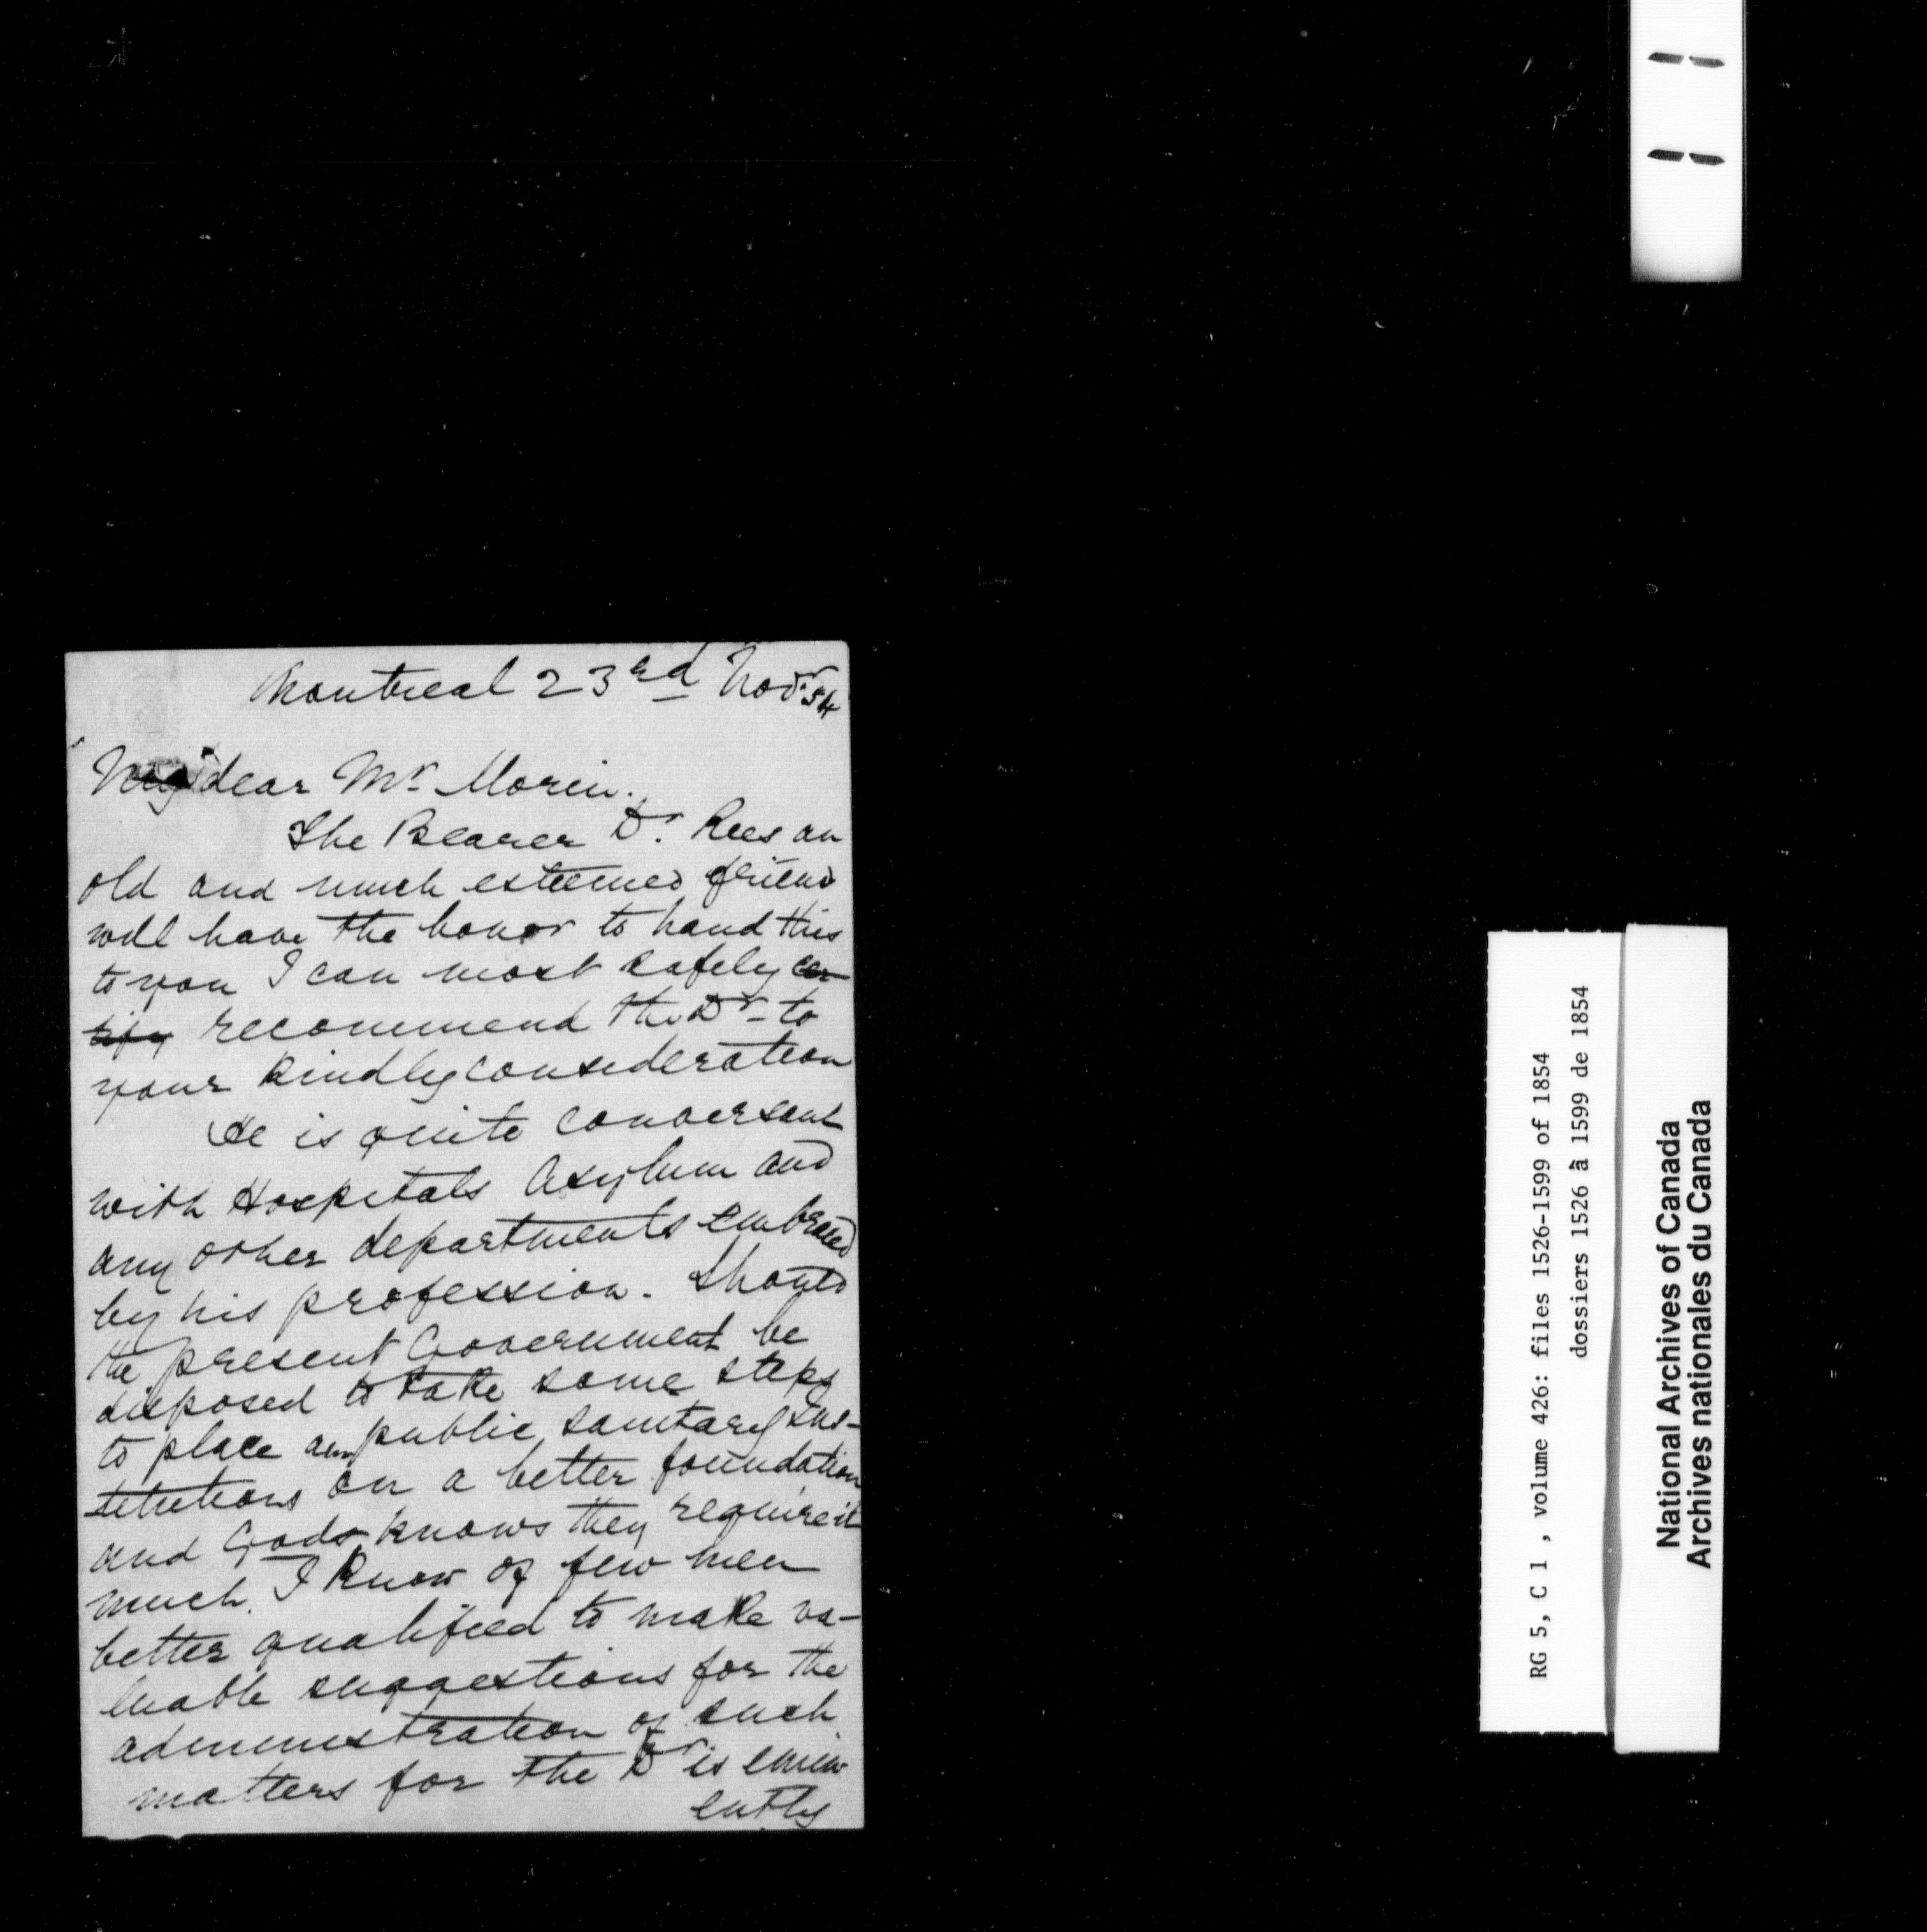 Montreal 23rd Novr 54
My dear Mr Morin.
The Bearer Dr. Rees an
old and much esteemed friend
will have the honor to hand this
to you I can most safely cer-
tify recommend the Dr to
your kindly consideration
He is quite conversant
with Hospitals Asylum and
any other departments embraced
by his profession. Should
the present Government be
disposed to take some steps
to place any public sanitary ins-
titutions on a better foundation
and Gods knows they require it
much. I know of few men
better qualified to make va-
luable suggestions for the
administration of such
matters for the Dr is emin
ently
RG 5, C 1 , volume 426: files 1526-1599 of 1854
dossiers 1526 à 1599 de 1854
National Archives of Canada
Archives nationales du Canada